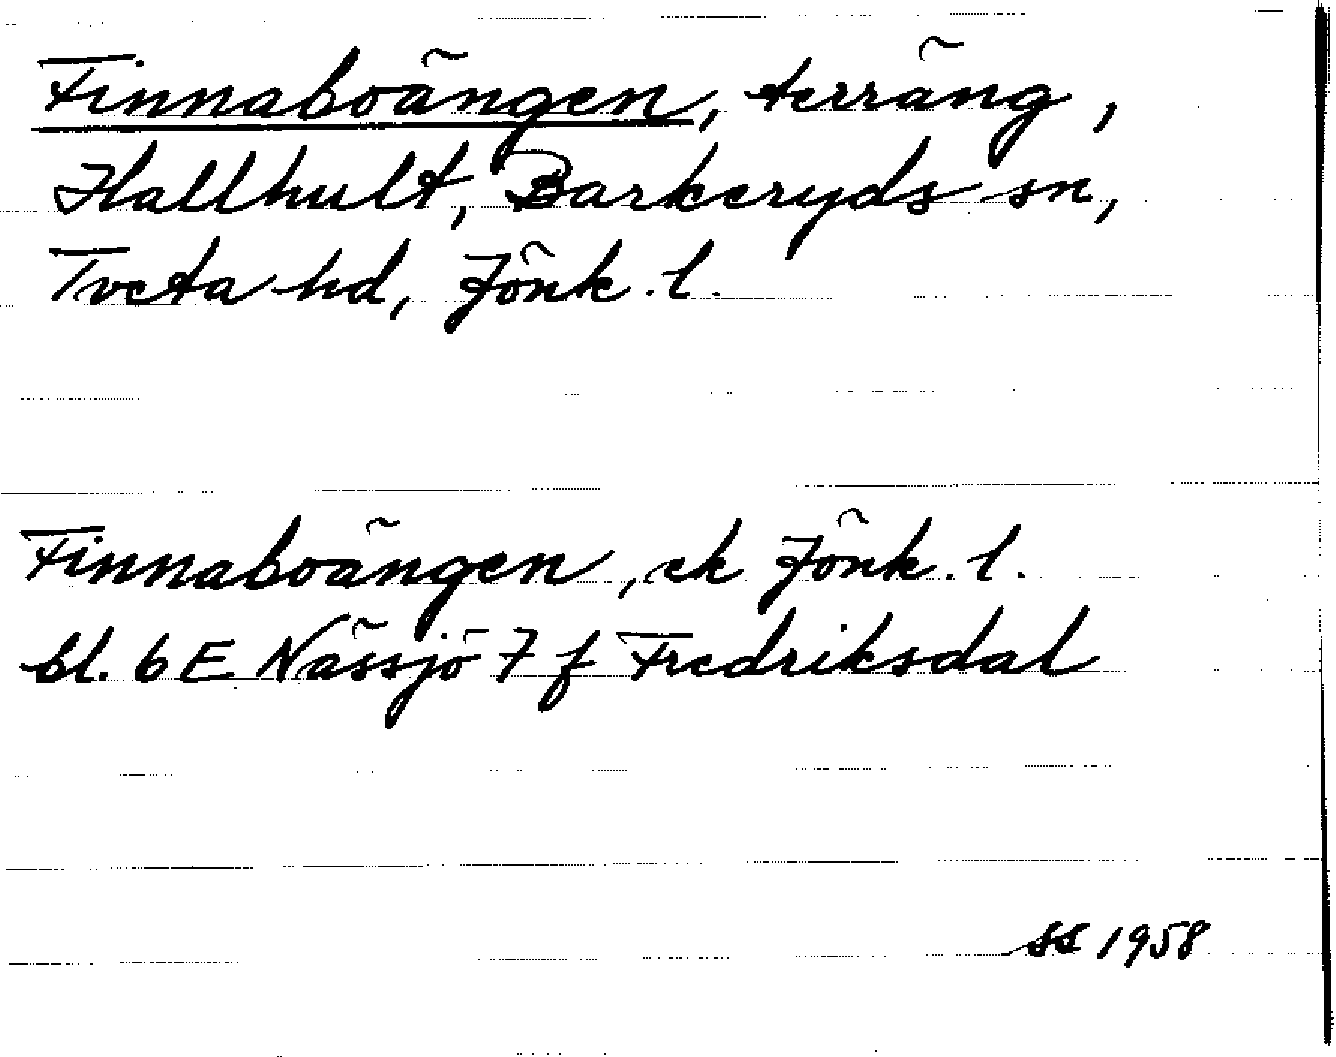 Finnaboängen, terräng,
Hallhult, Barkeryds sn,
Tveta hd, Jönk. l.
Finnaboängen, ek Jönk. l.
bl. 6 E Nässjö 7 f Fredriksdal
SS 1958